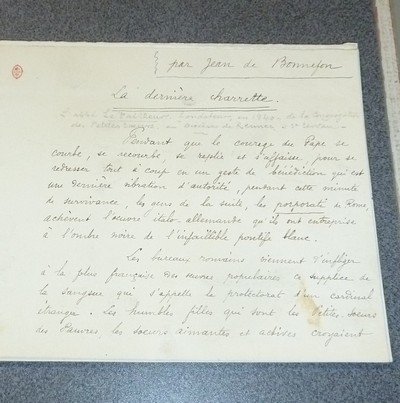 par Jean de Bonnefon
La dernière charrette.
L'abbé Le Pailleur, fondateur, en 1840, de la Congrégation
des Petites
Pendant que le courage du Pape se
courbe, se recourbe, se replie et s'affaisse, pour se
redresser tout à coup en un geste de bénédiction qui est
une dernière vibration d'autorité, pendant cette minute
de survivance, les gens de la suite, les porporati de Rome,
achèvent l'œuvre italo-allemande qu'ils ont entreprise
à l'ombre noire de l'infaillible pontife blanc.
Les bureaux romains viennent d'infliger
à la plus française des œuvres populaires ce supplice de
la sangsue qui s'appelle le protectorat d'un cardinal
étranger. Les humbles filles qui sont les Petites Soeurs
des Pauvres, les soeurs aimantes et actives croyaient